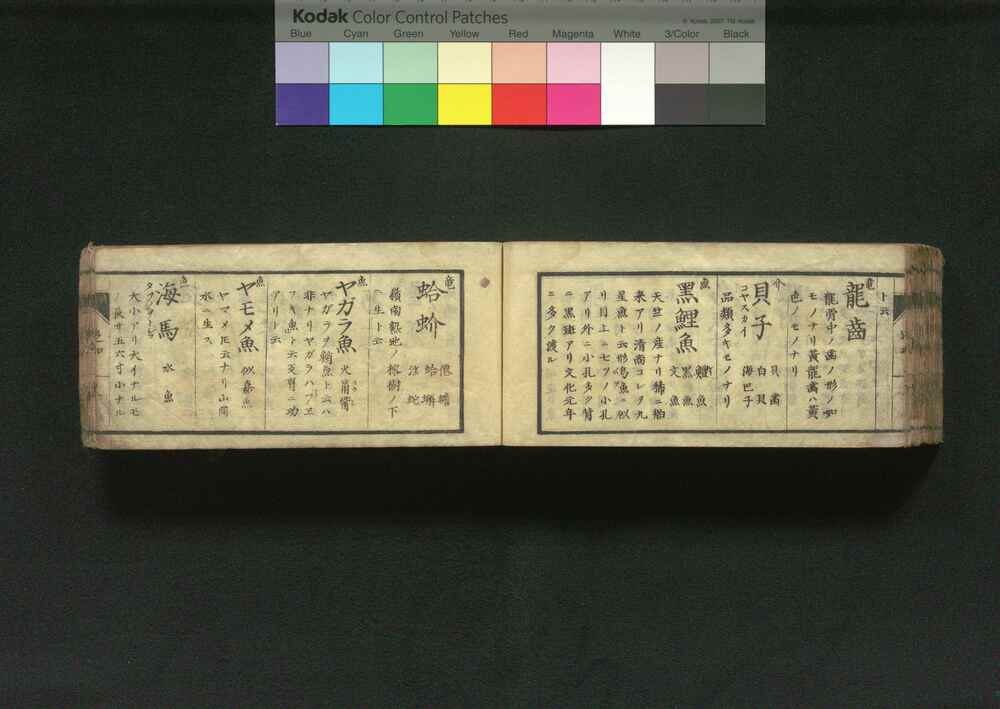 Kodak Color Control Patches
© Kodak 2007, TM: Kodak
Blue Cyan Green Yellow Red Magenta White 3/Color Black
龍齒
龍背中ノ齒ノ形ノ如
モノナリ黄龍齒ハ黄
色ノモノナリ
介
貝子
コヤスカイ
貝齒
白貝
海巴子
品類多キモノナリ
魚
黒鯉魚
黒魚
文魚
天竺ノ産ナリ
來アリ清南コレヲ九
星魚ト云形烏魚ニ似
リ目上ニ七ツノ小孔
アリ外ニ小孔多ク背
ニ黒斑アリ文化元年
ニ多ク渡ル
蛤蚧
僊蟾
蛤蠏
嶺南ノ榕樹ノ下
ニ生ト云
魚
ヤガラ魚
火筩嘴
ヤガラヲ鞘魚ト云ハ
非ナリヤガラハフエ
フキ魚ト云
アリト云
魚
ヤモメ魚
似嘉魚
ヤマメ𪜈云ナリ山間
水ニ生ス
魚
海馬
水魚
大小アリ大イナルモ
ノ長サ五六寸小ナル